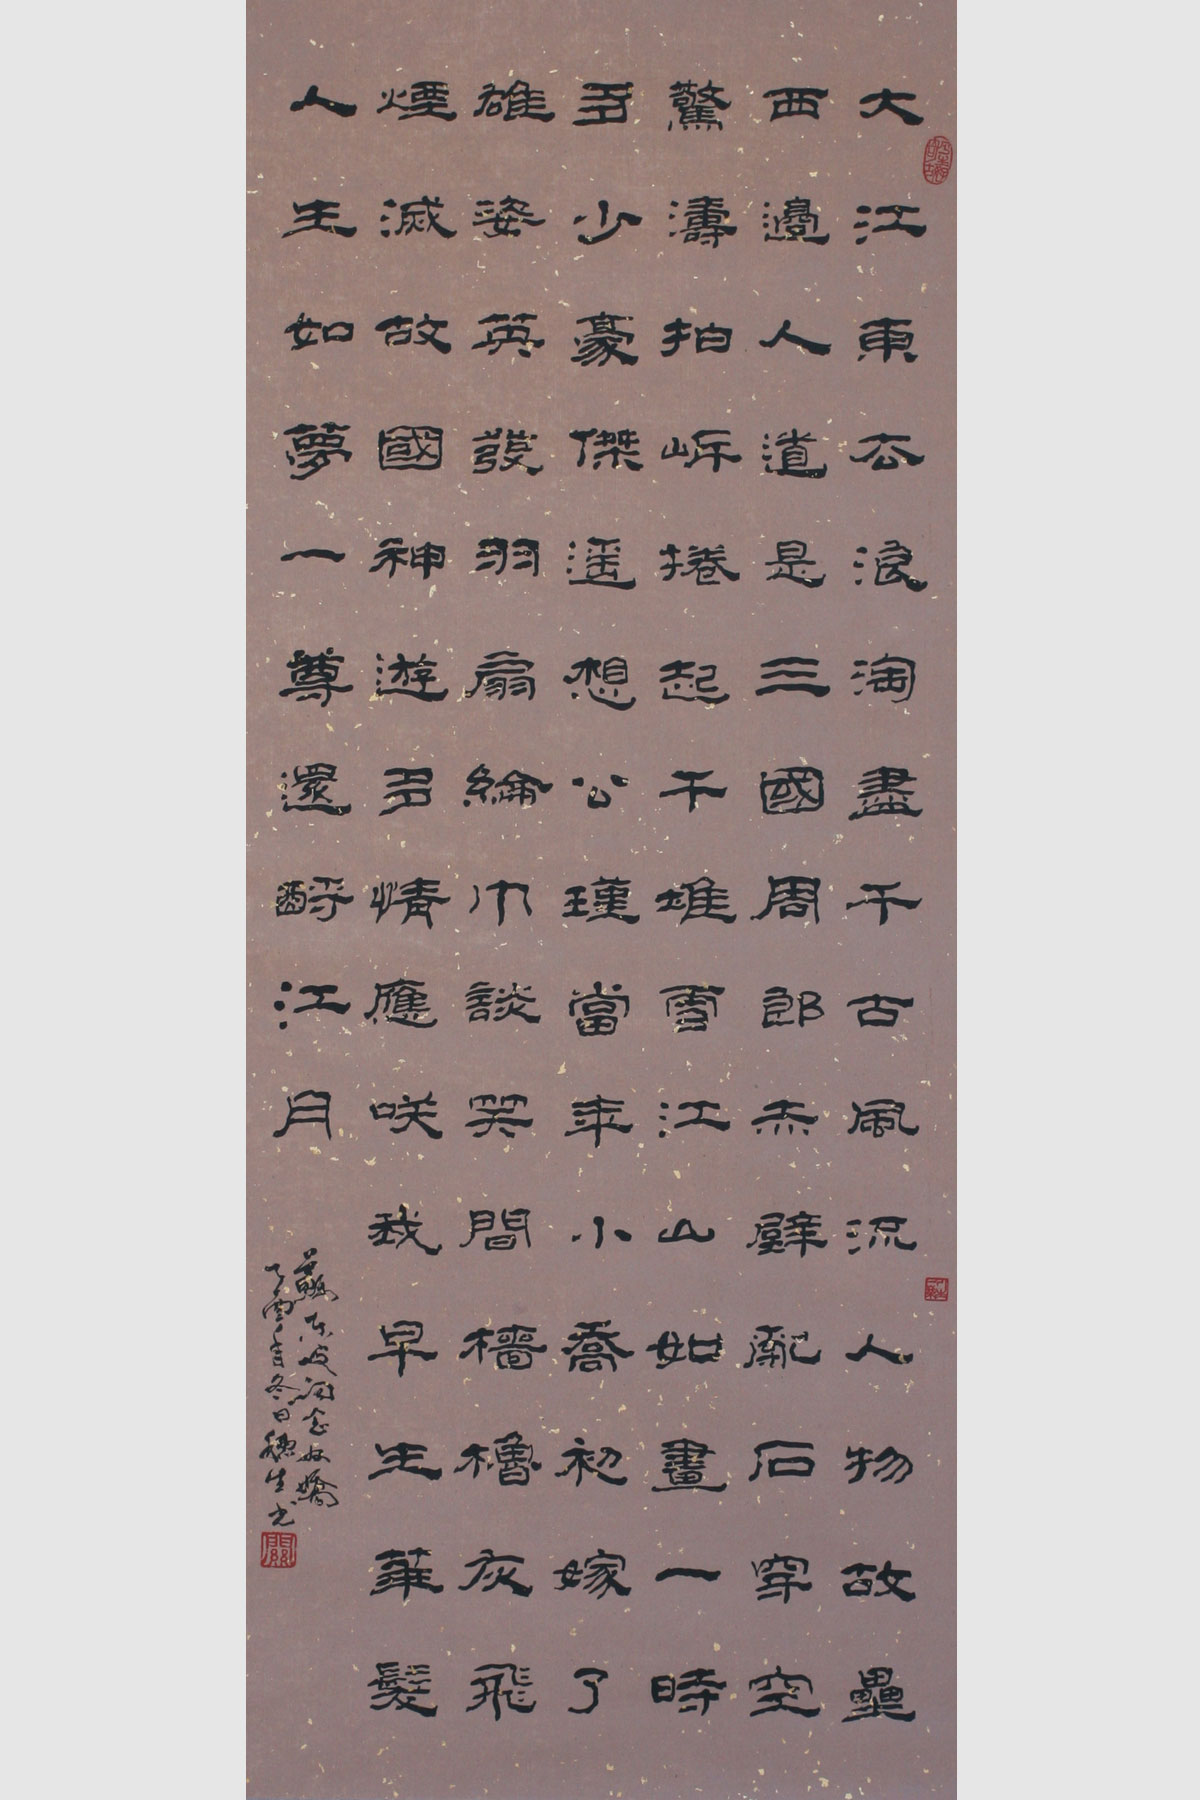 大江東去浪淘盡千古風流人物故壘
西邊人道是三國周郎赤壁亂石穿空
驚濤拍岸捲起千堆雪江山如畫一時
多少豪傑遥想公瑾當年小喬初嫁了
雄姿英發羽扇綸巾談笑間檣櫓灰飛
煙滅故國神遊多情應咲我早生華髮
人生如夢一尊還酹江月
蘇東坡詞念奴嬌
乙酉年冬日穗生书
關